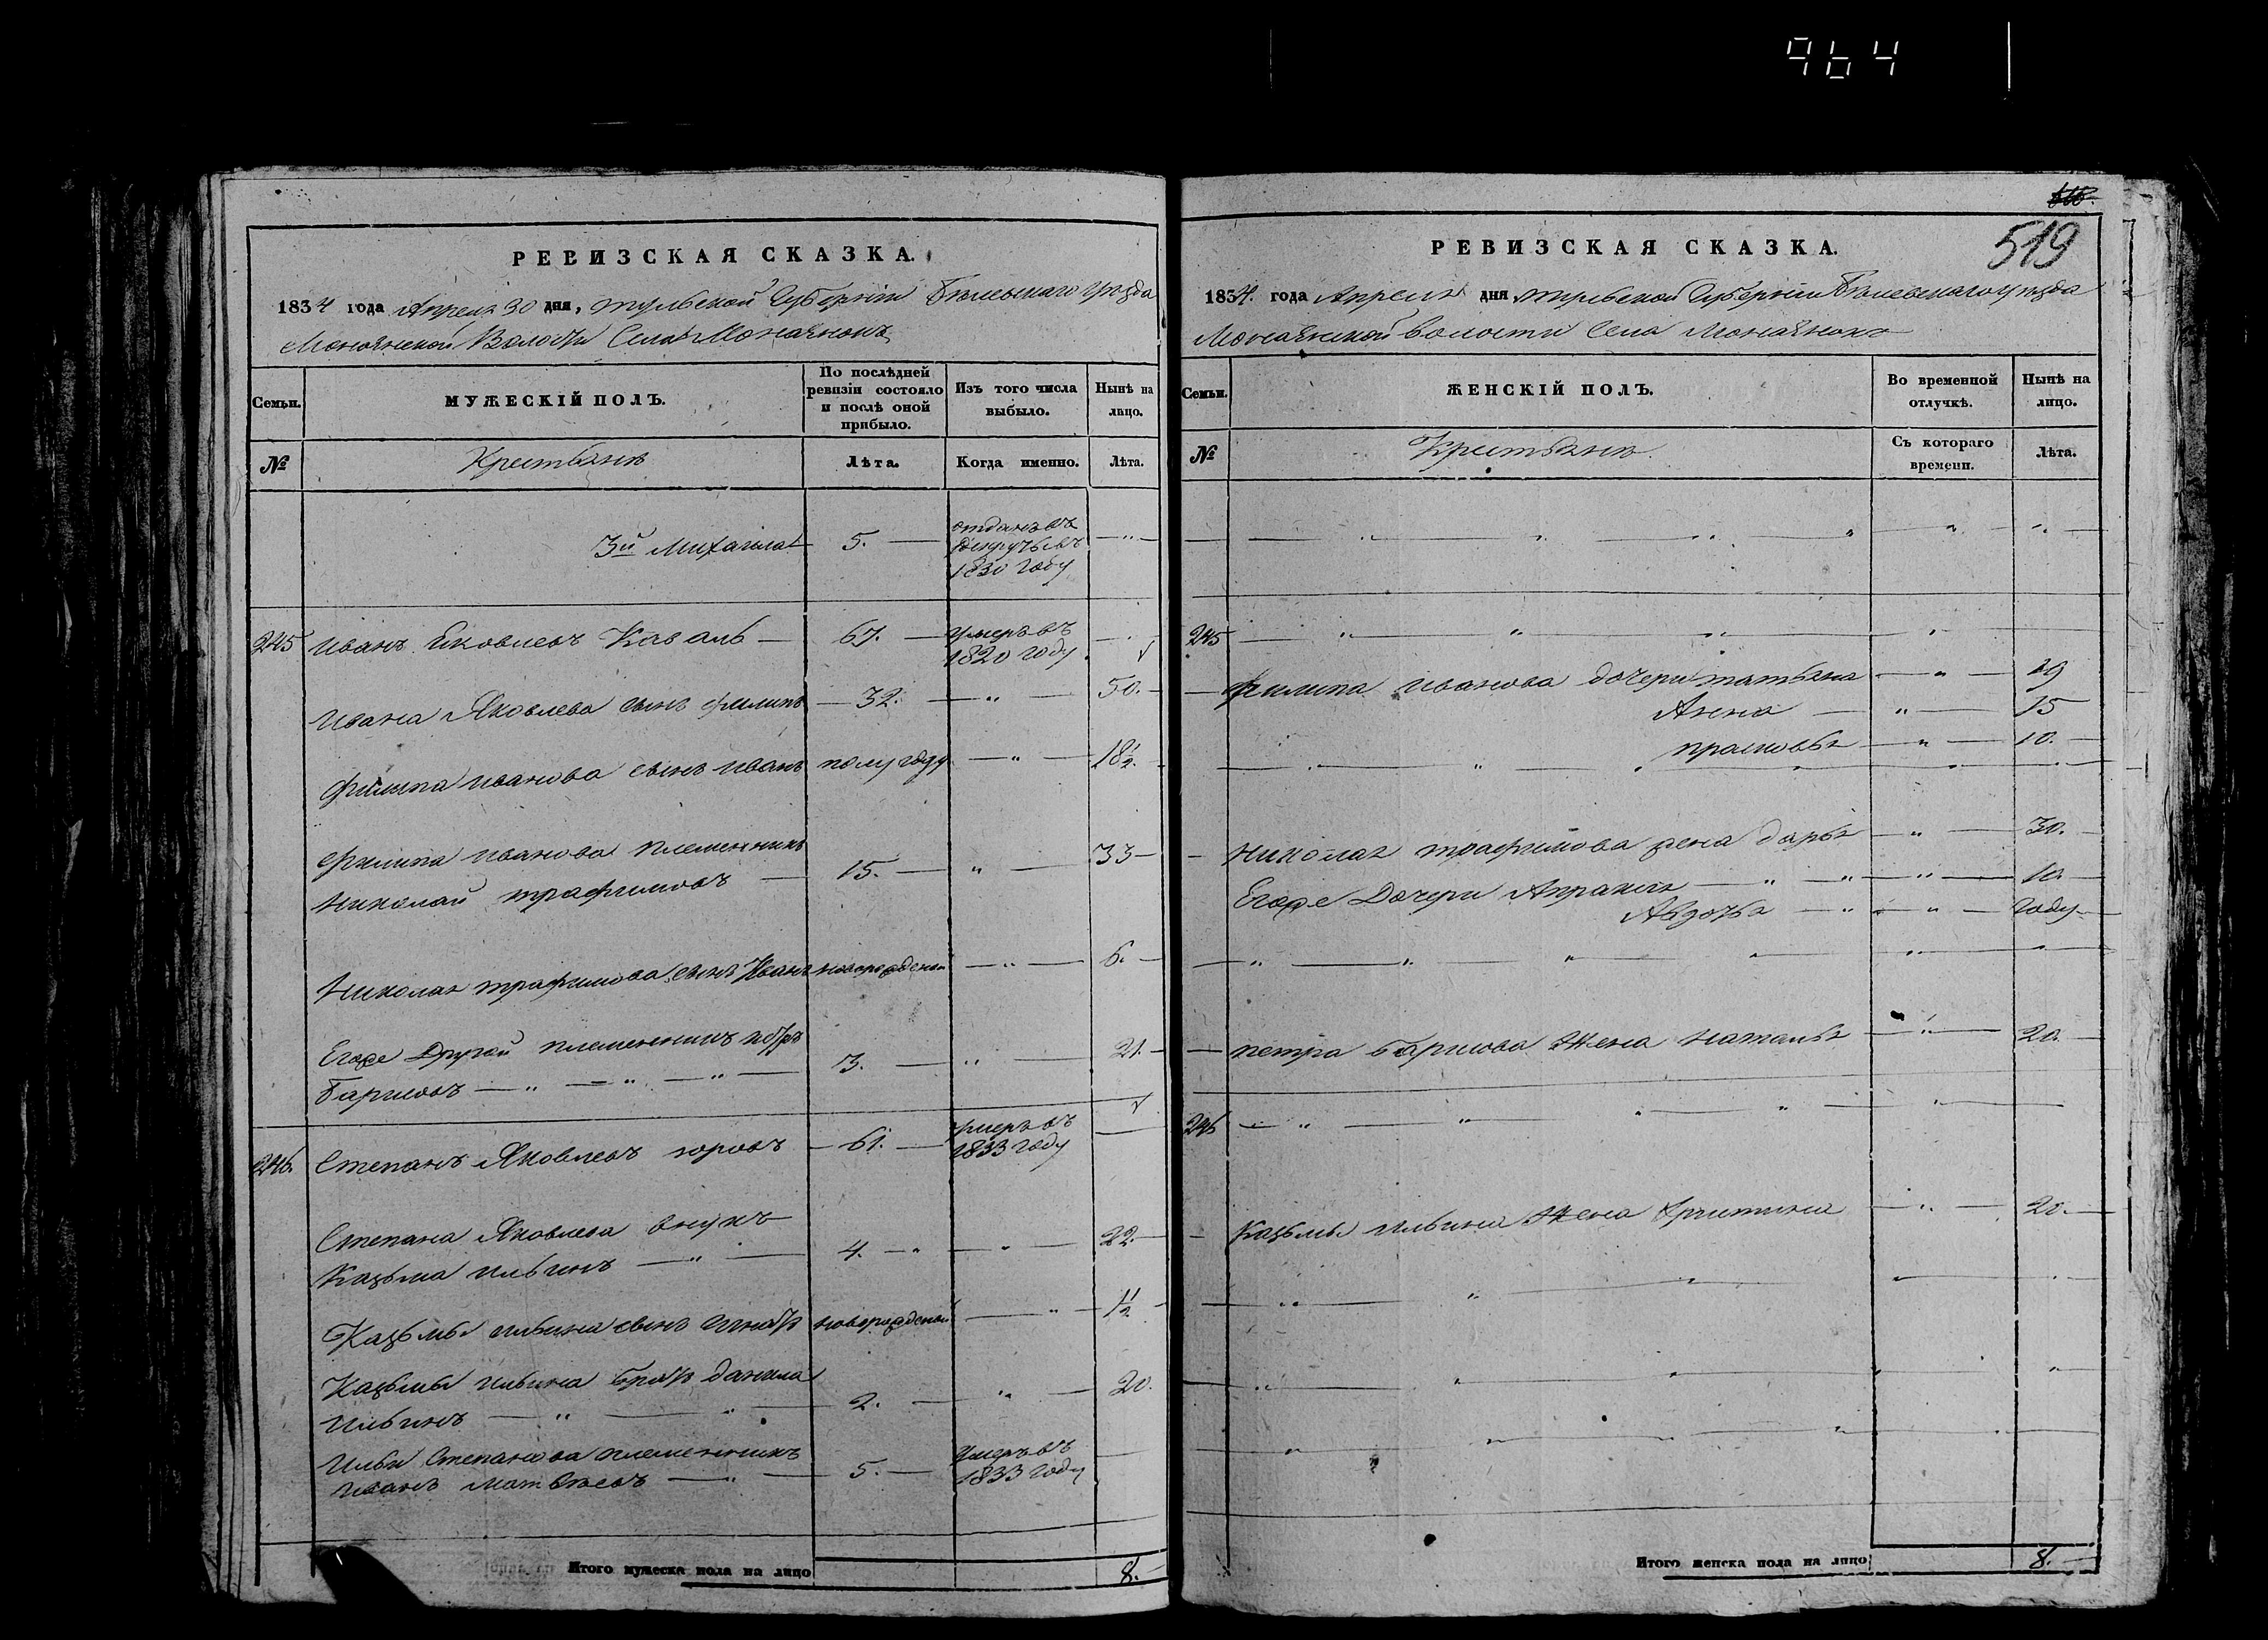 964
РЕВИЗСКАЯ СКАЗКА.
1834 года Апреля 30 дня, тульской Губернiи Бѣлевскаго уѣзда
Волости Села
Семьи.
МУЖЕСКІЙ ПОЛЪ.
По послѣдней ревизіи состояло и послѣ оной прибыло.
Изъ того числа выбыло.
Нынѣ на лицо.
№
Крестьянъ
Лѣта.
Когда именно.
Лѣта.
3й Михаила 5. отданъ въ рекруты въ 1830 году
245 Иванъ Яковлевъ Каваль 67. умеръ въ 1820 году
Ивана Яковлева сынъ филипъ 32. 50.
филипа иванова сынъ иванъ полугоду 18 1/2.
филипа иванова племенникъ
николай трафимовъ 15. 33
николая трафимова сынъ Иванъ новорожденой 6.
Егоже Другой племенникъ петръ
Барисовъ 3. 21.
246. Степанъ Яковлевъ 61. умеръ въ 1833 году
Степана Яковлева внукъ
Казьма ильинъ 4. 22.
Казьмы ильина сынъ новорожденой 1 1/2
Казьмы ильина братъ данила
ильинъ 2. 20.
Ильи Степанова племенникъ
иванъ матвѣевъ 5. умеръ въ 1833 году
Итого мужеска пола на лицо 8.
519
РЕВИЗСКАЯ СКАЗКА.
1834. года Апреля дня тульской Губернiи Бѣлевскаго уѣзда
волости Села
Семьи.
ЖЕНСКІЙ ПОЛЪ.
Во временной отлучкѣ.
Нынѣ на лицо.
№
Крестьянъ
Съ котораго времени.
Лѣта.
245
филипа иванова дочери татьяна 19
Анна 15
прасковья 10.
николая трафимова жена дарья 30.
Егоже Дочери Апраксия 10.
Авдотья году
петра барисова жена наталья 20.
246
Казьмы ильина жена христина 20.
Итого женска пола на лицо 8.